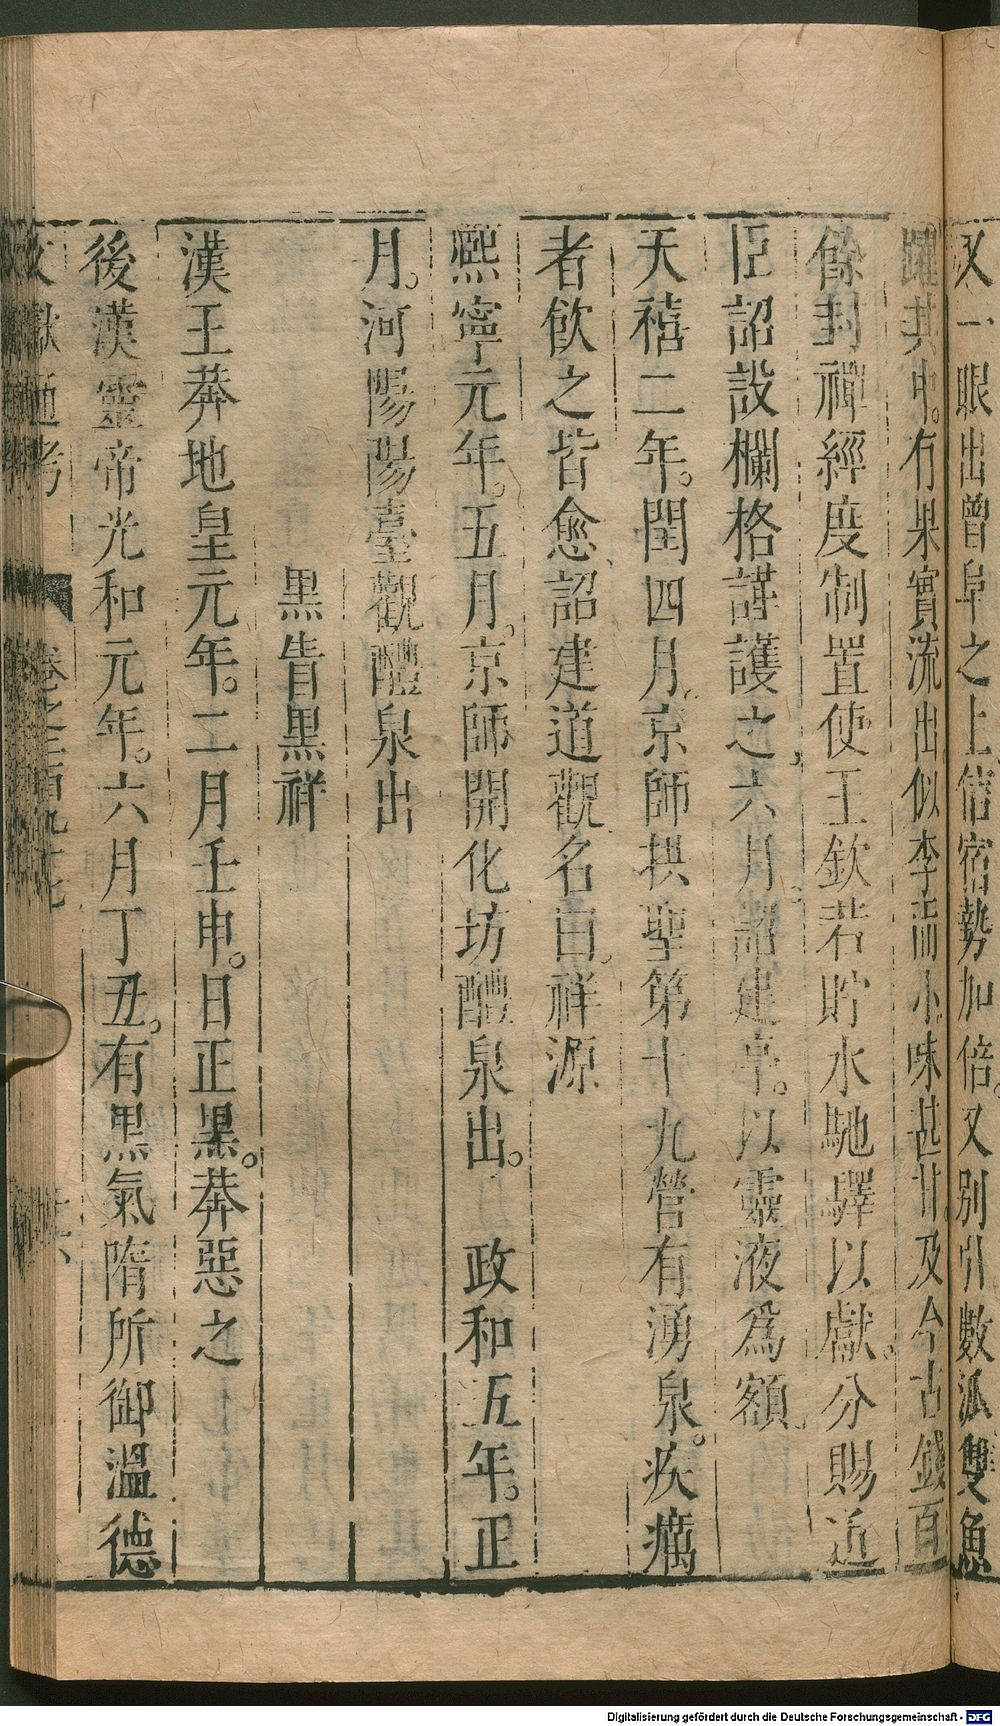 又一眼出曾阜之上信宿勢加倍。又別引數派雙魚
躍其中。有果實流出似李而小味甚甘及今古錢百
餘封禪經度制置使王欽若貯水馳驛以獻。分賜近
臣詔設欄格謹護之六月詔建亭。以靈液爲額
天禧二年。閏四月京師拱聖第十九營有湧泉。疾癘
者飲之皆愈詔建道觀名曰。祥源
熙寧元年。五月。京師開化坊醴泉出。 政和五年。正
月。河陽陽臺觀醴泉出
黑眚黑祥
漢王莽地皇元年。二月壬申。日正黑。莽惡之
後漢靈帝光和元年。六月丁丑。有黑氣隋所御溫德
文獻通考 卷之三百九十七
Digitalisierung gefördert durch die Deutsche Forschungsgemeinschaft - DFG